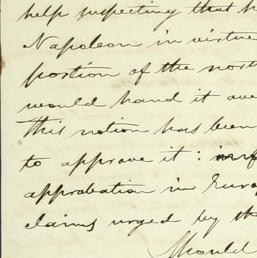 help inspecting that h
Napoleon in virtue
portion of the nort
would hand it ove
this notion has been
to approve it :
approbation in Euro
claims urged by th
Should